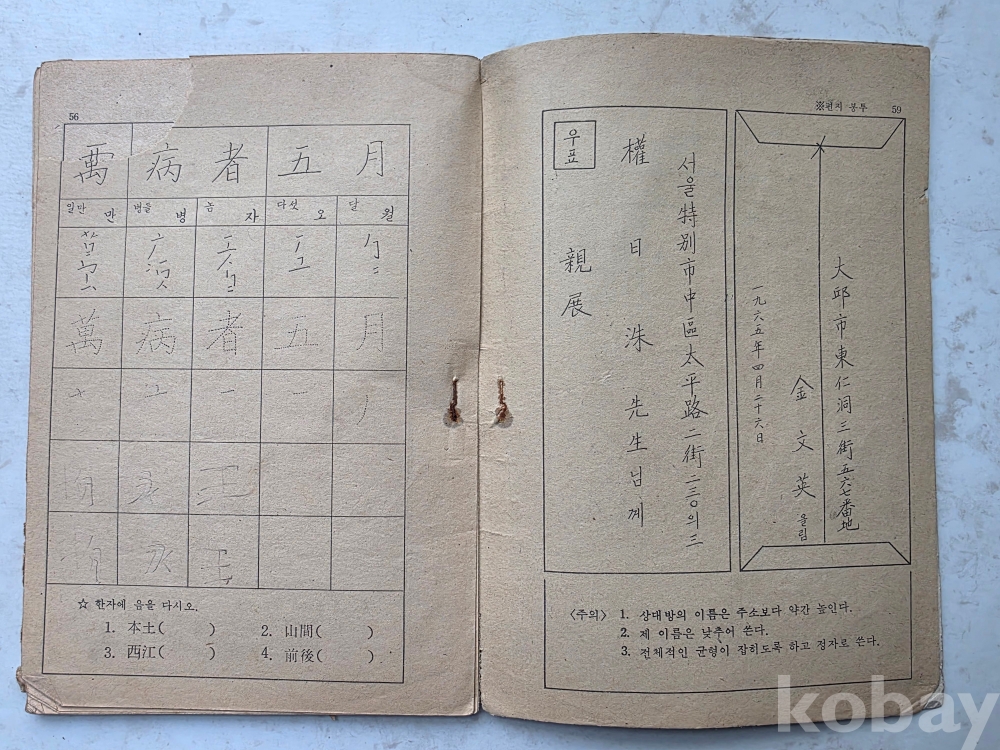 56
萬 病 者 五 月
일만 만 병들 병 놈 자 다섯 오 달 월
萬 病 者 五 月
☆ 한자에 음을 다시오.
1. 本土( ) 2. 山間( )
3. 西江( ) 4. 前後( )
※편지 봉투 59
大邱市東仁洞三街五六七番地
金文英 올림
一九六五年四月二十六日
서울特別市中區太平路二街 二三〇의 三
權日洙先生님께
우표
親展
〈주의〉 1. 상대방의 이름은 주소보다 약간 높인다.
2. 제 이름은 낮추어 쓴다.
3. 전체적인 균형이 잡히도록 하고 정자로 쓴다.
kobay